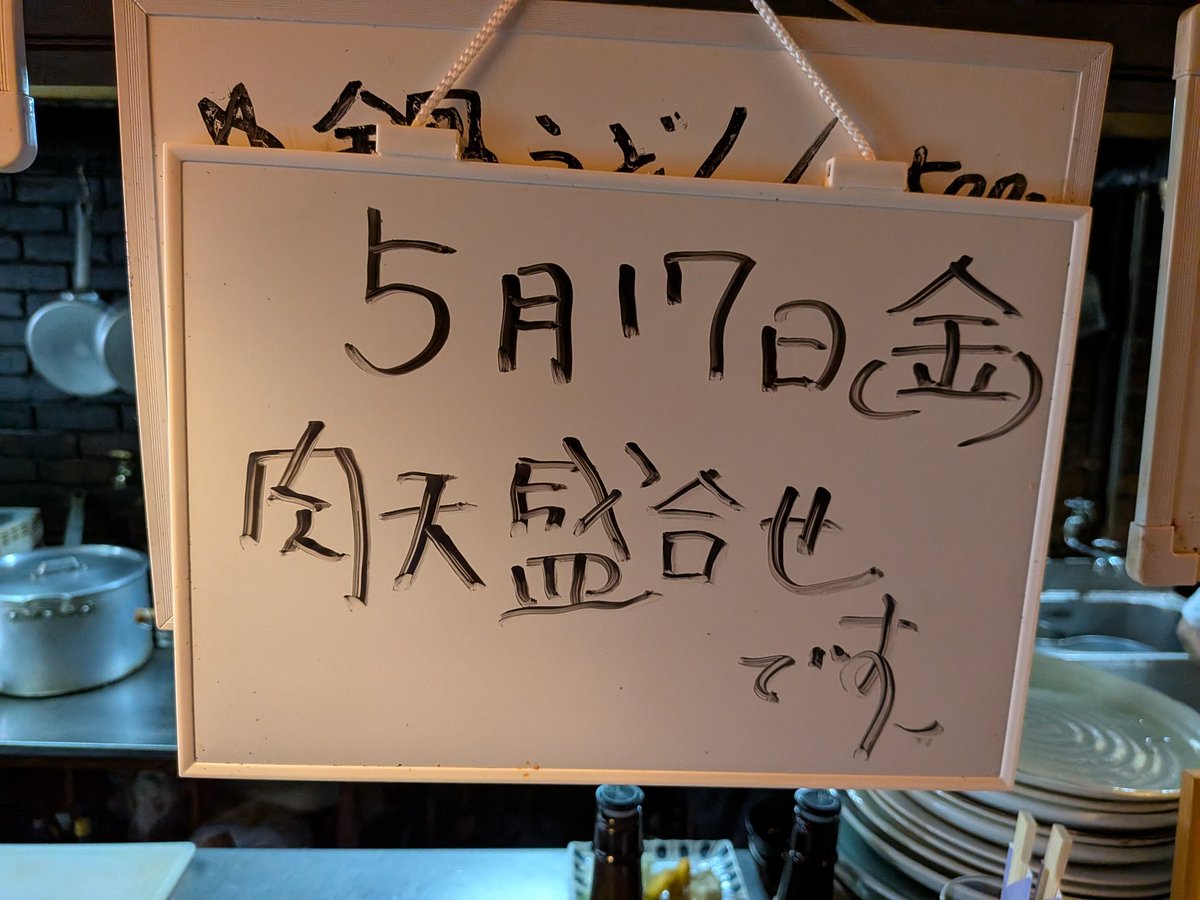 鍋うどん
5月17日(金)
肉天盛合せ
です